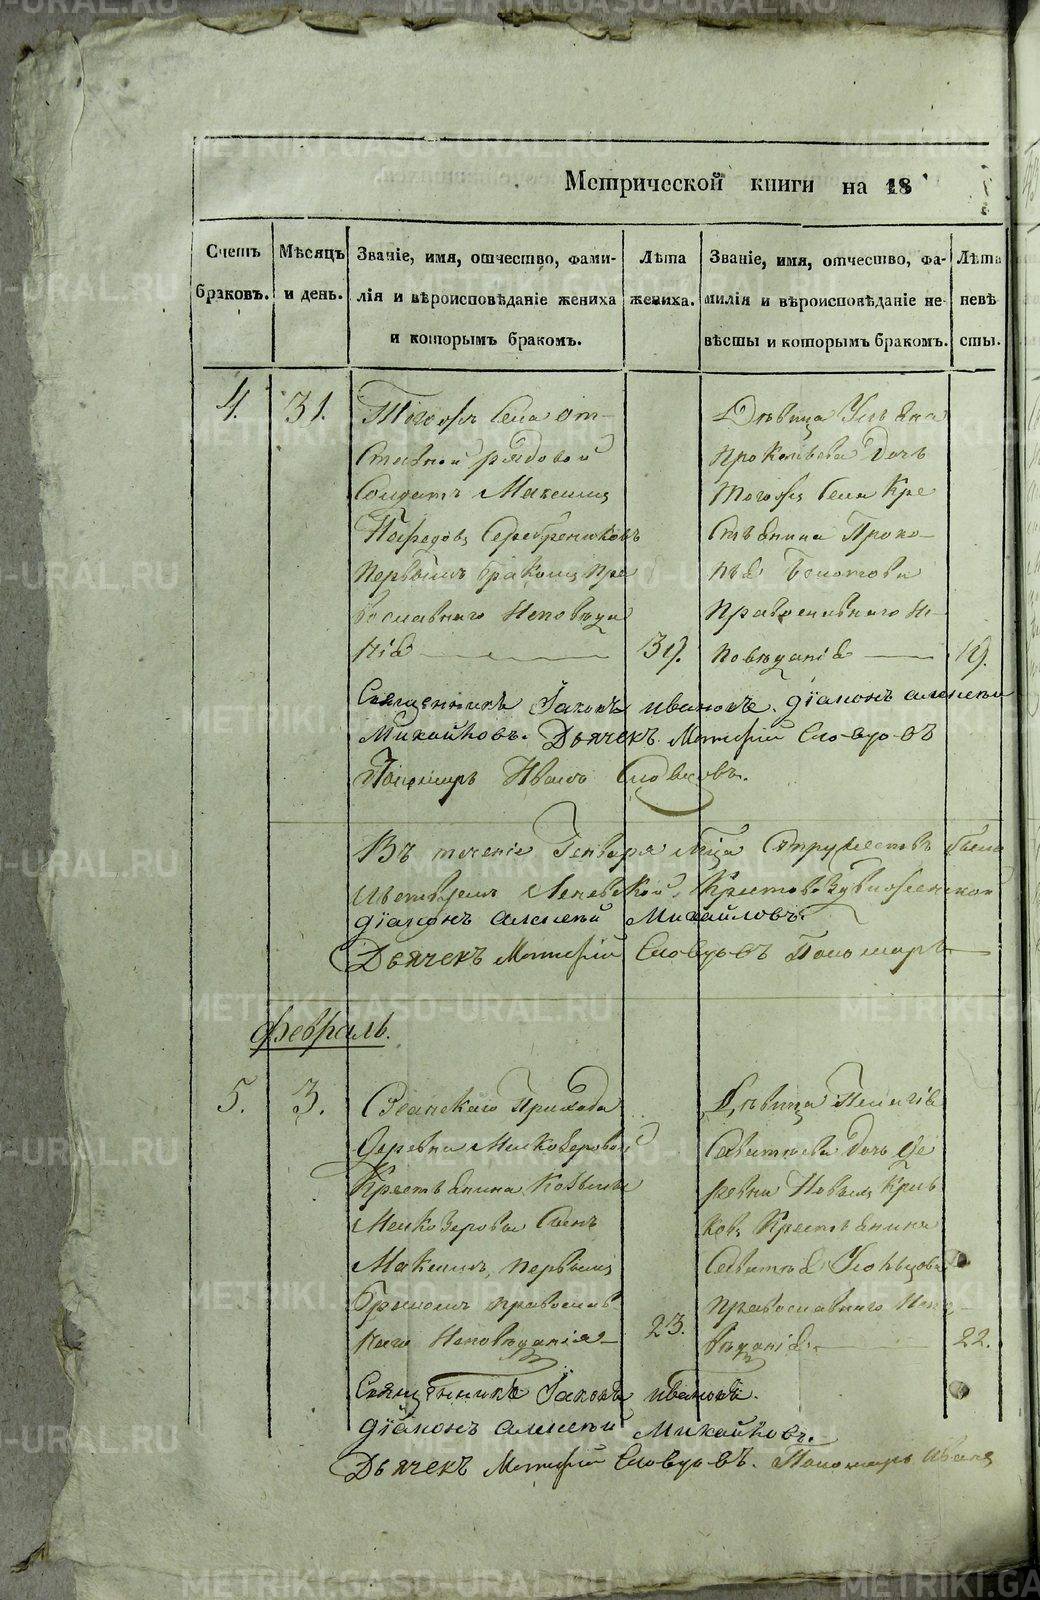 Метрической книги на 18
Счетъ браковъ.
Мѣсяцъ и день.
Званіе, имя, отчество, фами-
лія и вѣроисповѣданіе жениха
и которымъ бракомъ.
Лѣта жениха.
Званіе, имя, отчество, фа-
милія и вѣроисповѣданіе не-
вѣсты и которымъ бракомъ.
Лѣта невѣ
сты.
4.
31.
Тогожъ Села от-
ставной рядовой
Солдатъ Максимъ
Серебрениковъ
первымъ бракомъ пра
вославнаго Исповѣда
нія
39.
Дѣвица Ульяна
Прокопьева Дочь
тогожъ Села Кре
стьянина Проко-
пья Болотова
Православнаго Ис-
повѣданія
19.
Священникъ Іаковъ Ивановъ. діаконъ алексѣй
Михайловъ. Дьячекъ Матфій Словцовъ
Пономарь Иванъ Словцовъ.
Въ теченіе Генваря м҃ца
діаконъ алексѣй Михайловъ.
Дьячекъ Матфій Словцовъ Пономарь
февраль.
5.
3.
Прихода
Деревни Мелкозеровой
Крестьянина Козьмы
Мелкозерова Сынъ
Максимъ, первымъ
бракомъ православ
наго Исповѣданія
23.
Дѣвица Пелагія
Саватѣева дочь де
ревни Крю
ков Крестьянина
Саватѣя
православнаго Испо-
вѣданія
22.
Священникъ Іаковъ Ивановъ.
діаконъ алексѣй Михайловъ.
Дьячекъ Матфій Словцовъ. Пономарь Иванъ
METRIKI.GASO-URAL.RU